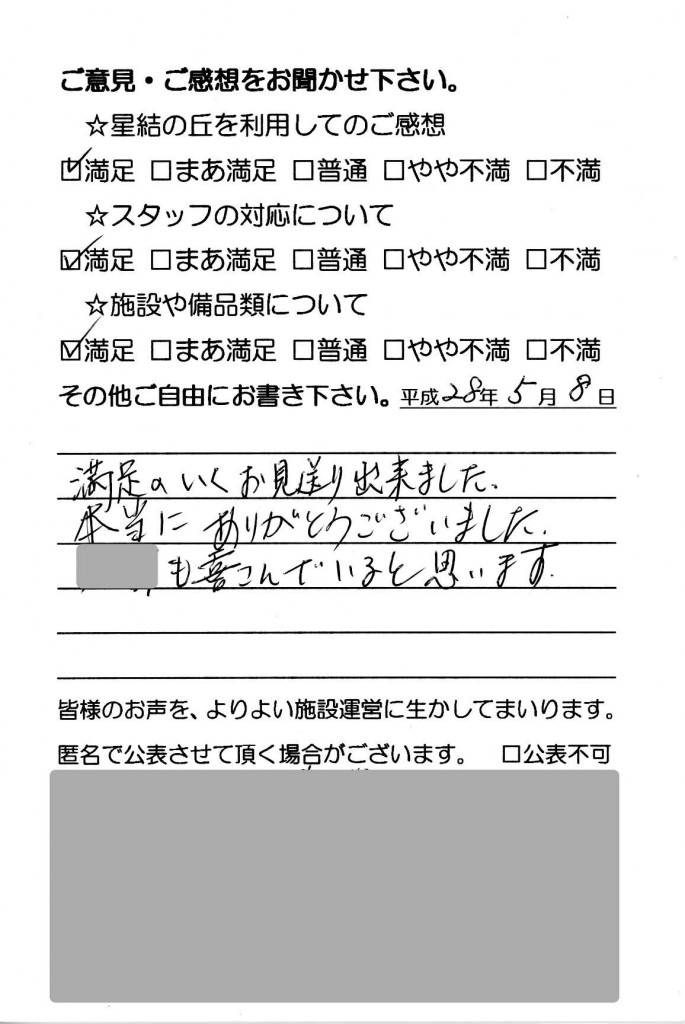 ご意見・ご感想をお聞かせ下さい。
☆星結の丘を利用してのご感想
☑満足 □まあ満足 □普通 □やや不満 □不満
☆スタッフの対応について
☑満足 □まあ満足 □普通 □やや不満 □不満
☆施設や備品類について
☑満足 □まあ満足 □普通 □やや不満 □不満
その他ご自由にお書き下さい。平成28年5月8日
満足のいくお見送り出来ました.
本当に ありがとうございました.
も喜こんでいると思います.
皆様のお声を、よりよい施設運営に生かしてまいります。
匿名で公表させて頂く場合がございます。 □公表不可